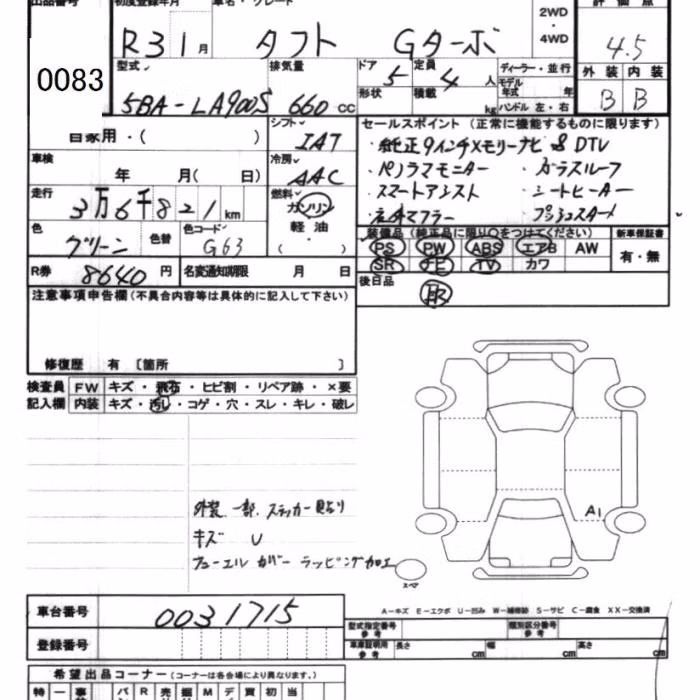 出品番号
初度登録年月
車名・グレード
2WD
・
4WD
評価点
R3 1 月
タフト
Gターボ
4.5
0083
型式
排気量
ドア
5
定員
4 人
ディーラー・並行
外装
内装
モデル年式 年
5BA-LA900S
660 cc
形状
積載
kg
ハンドル 左・右
B
B
自家用・( )
シフト
IAT
セールスポイント (正常に機能するものに限ります)
・純正9インチメモリーナビ & DTV
車検
年 月( 日)
冷房
AAC
・パノラマモニター ・ガラスルーフ
走行
3万6千821km
燃料
ガソリン
軽油
・
( )
・スマートアシスト ・シートヒーター
・ プッシュスタート
色
グリーン
色替
色コード
G63
装備品(純正品に限り○をつけてください)
新車保証書
PS PW ABS エアB AW
有・無
R券
8640 円
名変通知期限
月 日
SR TV カワ
後日品
取
注意事項申告欄(不具合内容等は具体的に記入して下さい)
修復歴 有 〔箇所 〕
検査員
記入欄
FW
キズ・飛石・ヒビ割・リペア跡・×要
内装
キズ・汚れ・コゲ・穴・スレ・キレ・破レ
外装 一部 ステッカー貼り
キズ U
フューエル カバー ラッピング加工
A1
スペア
A-キズ E-エクボ U-凹み W-補修跡 S-サビ C-腐食 XX-交換済
車台番号
0031715
型式指定番号
参考
類別区分番号
参考
登録番号
車庫証明用
参考
長さ
cm
幅
cm
高さ
cm
希望出品コーナー (コーナーは各会場により異なります。)